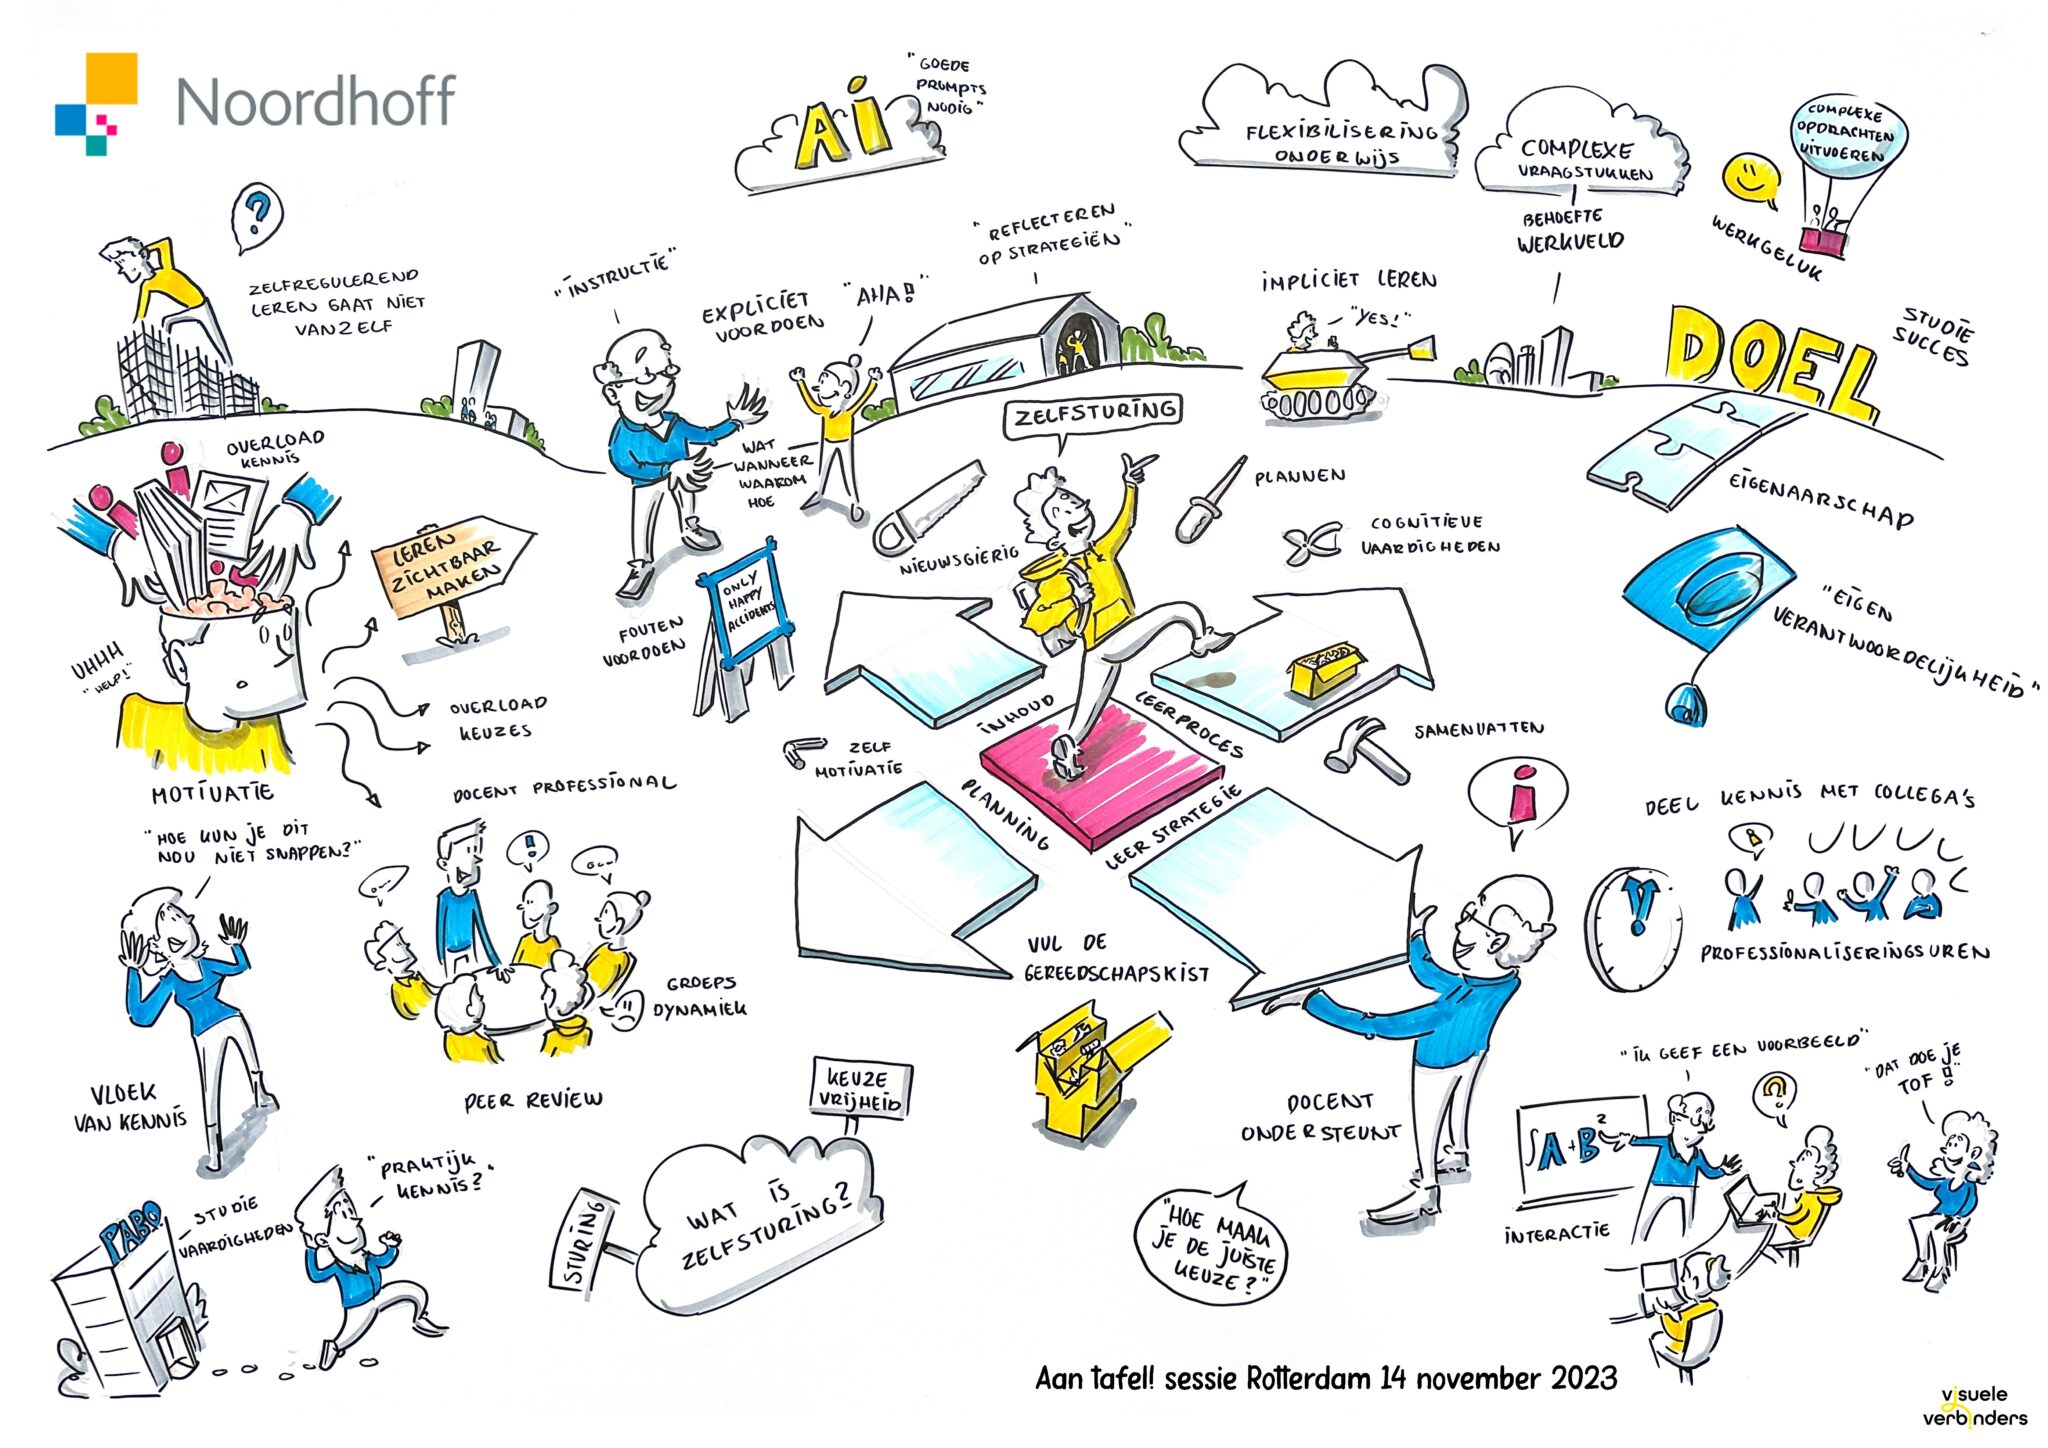 Noordhoff
Ai
"GOEDE
PROMPTS
NODIG"
FLEXIBILISERING
ONDERWIJS
COMPLEXE
VRAAGSTUKKEN
BEHOEFTE
WERKVELD
COMPLEXE
OPDRACHTEN
UITVOEREN
WERKGELUK
?
ZELFREGULEREND
LEREN GAAT NIET
VANZELF
"INSTRUCTIE"
EXPLICIET
VOORDOEN
"AHA!"
"REFLECTEREN
OP STRATEGIËN"
IMPLICIET LEREN
"YES!"
DOEL
STUDIE
SUCCES
EIGENAARSCHAP
"EIGEN
VERANTWOORDELIJKHEID"
OVERLOAD
KENNIS
LEREN
ZICHTBAAR
MAKEN
UHHH
"HELP!"
OVERLOAD
KEUZES
MOTIVATIE
WAT
WANNEER
WAAROM
HOE
FOUTEN
VOORDOEN
ONLY
HAPPY
ACCIDENTS
ZELFSTURING
NIEUWSGIERIG
PLANNEN
COGNITIEVE
VAARDIGHEDEN
INHOUD
LEERPROCES
PLANNING
LEERSTRATEGIE
ZELF
MOTIVATIE
SAMENVATTEN
i
DEEL KENNIS MET COLLEGA'S
PROFESSIONALISERINGSUREN
"HOE KUN JE DIT
NOU NIET SNAPPEN?"
VLOEK
VAN KENNIS
DOCENT PROFESSIONAL
...
!
...
GROEPS
DYNAMIEK
PEER REVIEW
VUL DE
GEREEDSCHAPSKIST
DOCENT
ONDERSTEUNT
"IK GEEF EEN VOORBEELD"
"DAT DOE JE
TOF!"
∫A+B²
INTERACTIE
PABO
STUDIE
VAARDIGHEDEN
"PRAKTIJK
KENNIS?"
KEUZE
VRIJHEID
STURING
WAT IS
ZELFSTURING?
"HOE MAAK
JE DE JUISTE
KEUZE?"
Aan tafel! sessie Rotterdam 14 november 2023
visuele
verbinders